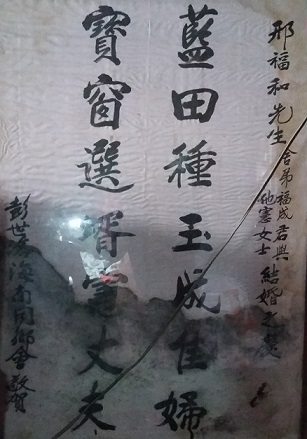 邢福和先生
舍弟福成君與
憲女士
結婚之慶
藍田種玉成佳婦
寶窗選壻寔丈夫
彭世 海南同鄉會敬賀